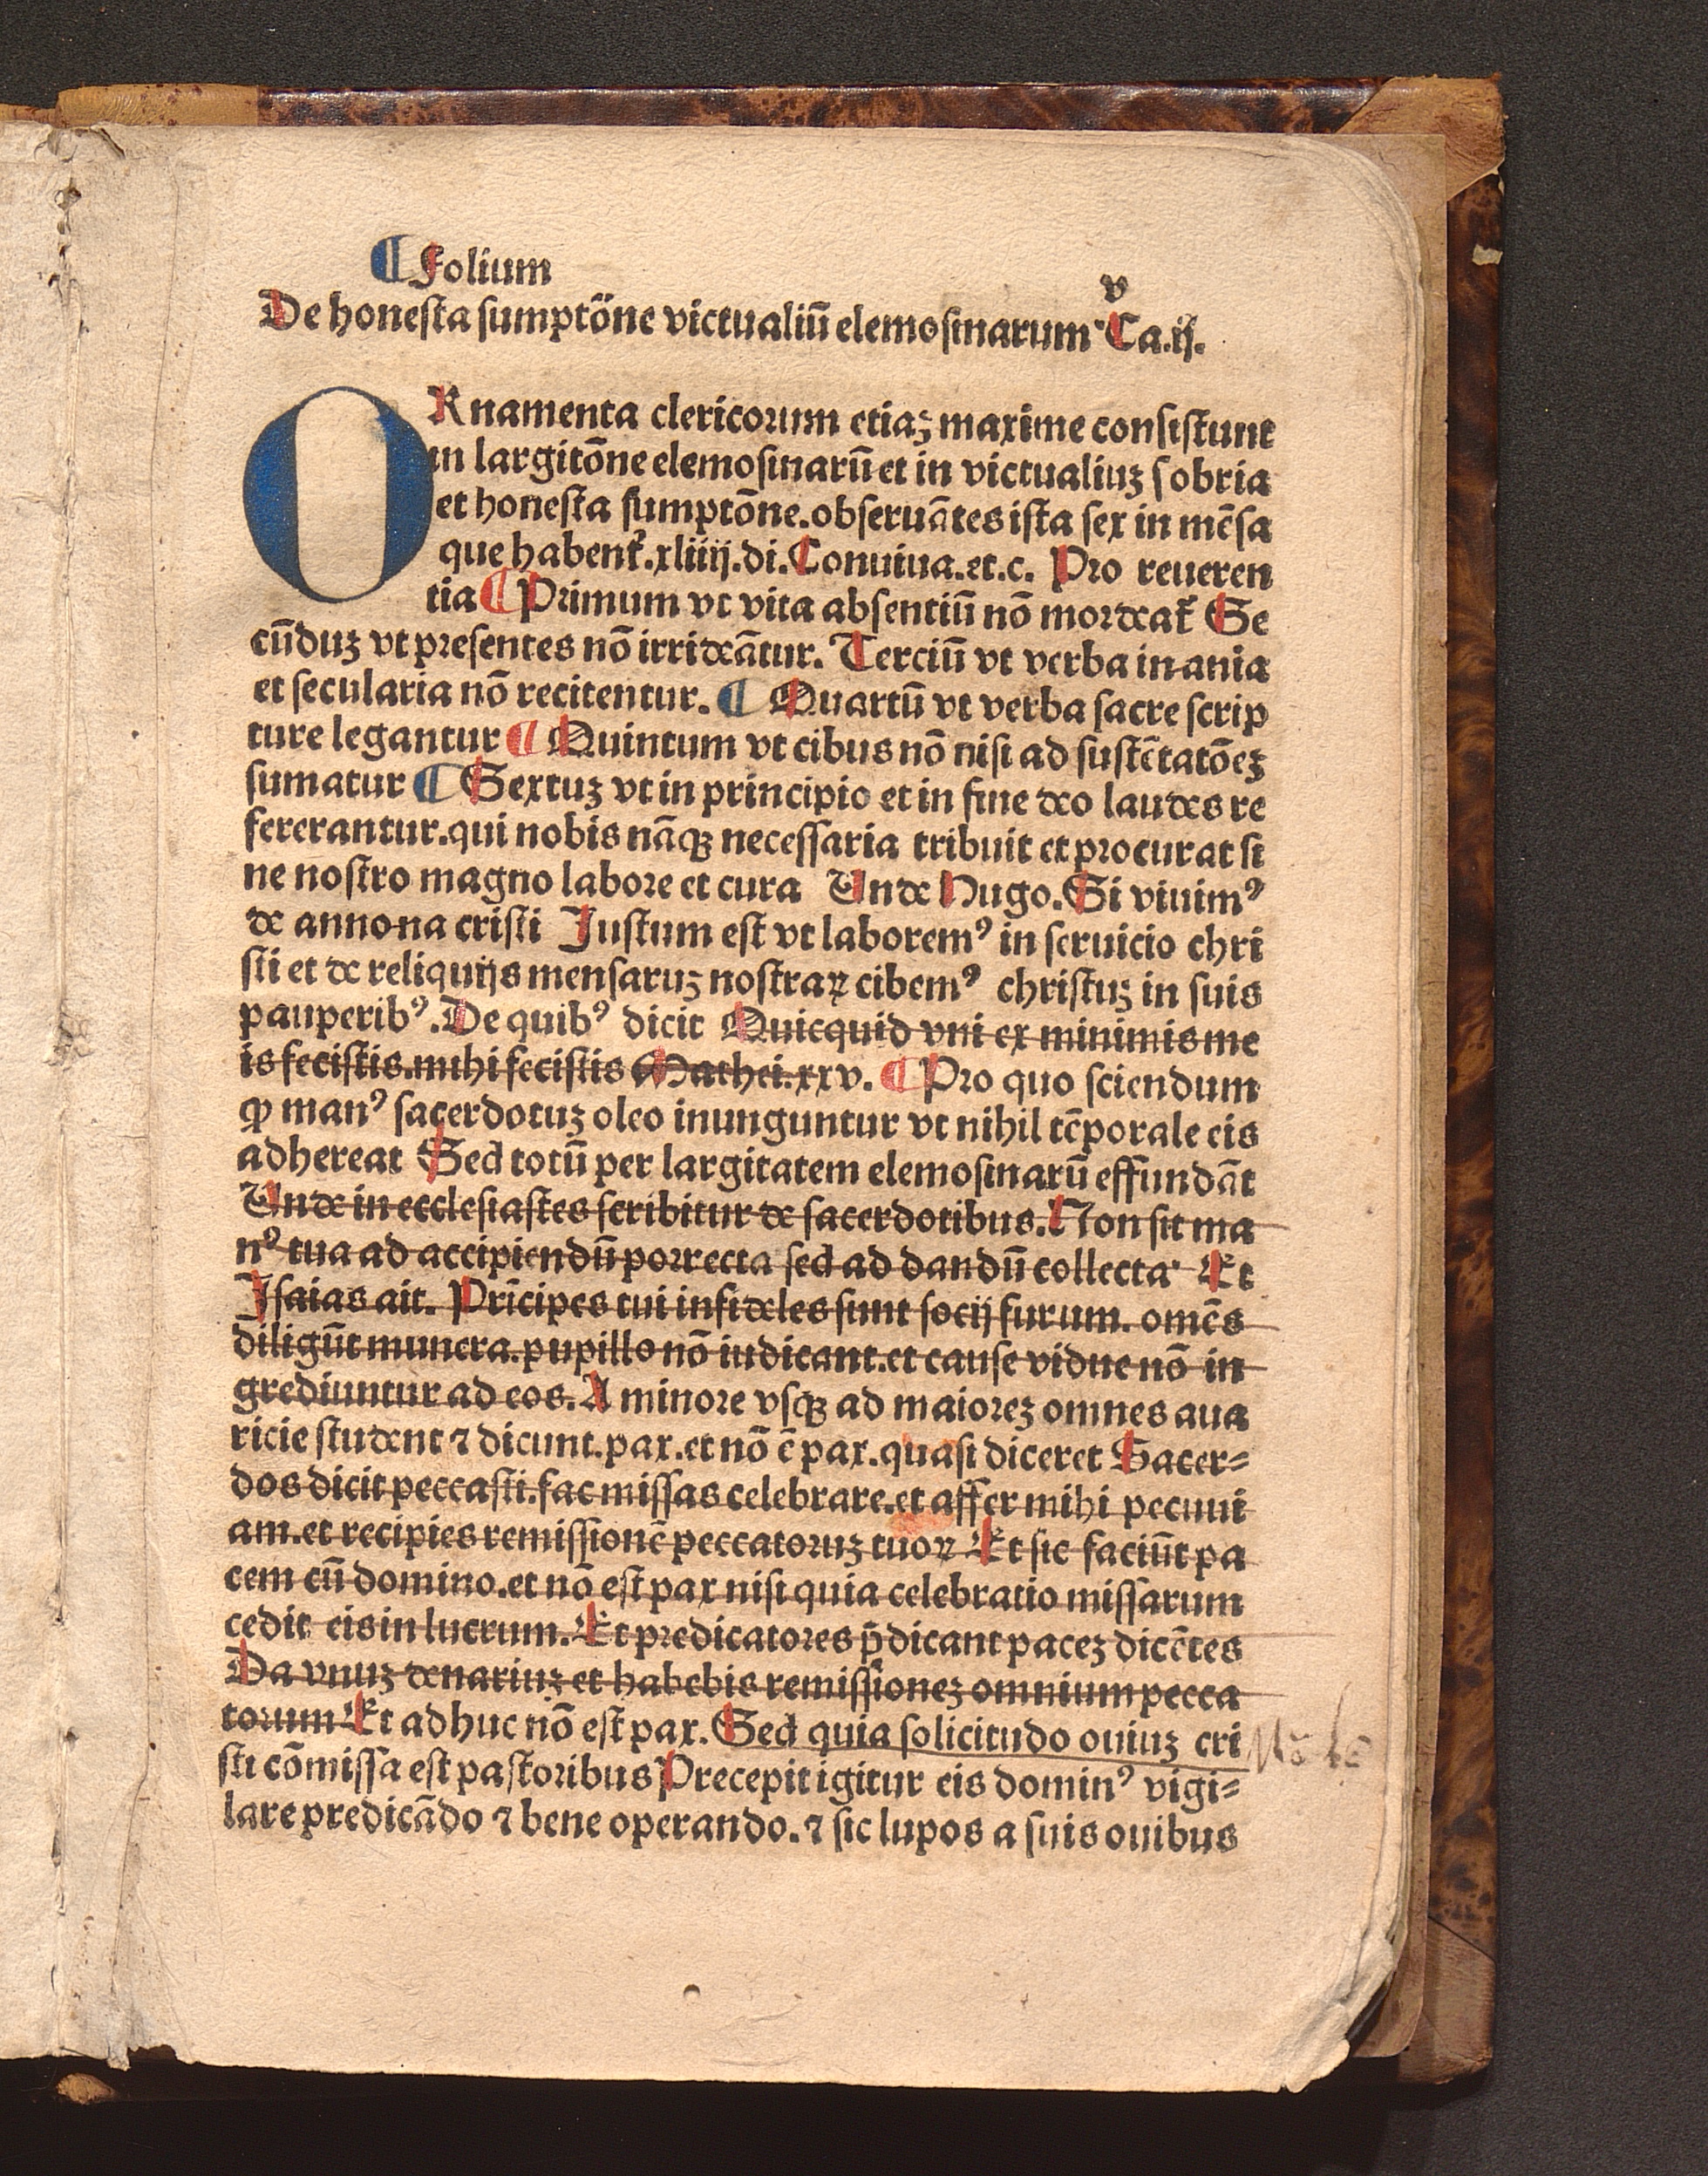 ¶ folium
v
De honesta sumptōne victualiū elemosinarum Ca.ij.
ORnamenta clericorum etiaꝫ maxime consistunt
in largitōne elemosinarū et in victualiuꝫ sobria
et honesta sumptōne. obseruātes ista sex in mēsa
que habent᷑.xliiij.di.Conuiua.et.c. Pro reueren
tia ¶ Primum vt vita absentiū nō mordeat᷑ Se
cūduꝫ vt presentes nō irrideātur. Terciū vt verba inania
et secularia nō recitentur. ¶ Quartū vt verba sacre scrip
ture legantur ¶ Quintum vt cibus nō nisi ad sustētatōeꝫ
sumatur ¶ Sextuꝫ vt in principio et in fine deo laudes re
fererantur.qui nobis nāqꝫ necessaria tribuit et procurat si
ne nostro magno labore et cura Unde Hugo.Si viuimꝰ
de annona cristi Justum est vt laboremꝰ in seruicio chri
sti et de reliquijs mensaruꝫ nostraꝝ cibemꝰ christuꝫ in suis
pauperibꝰ.De quibꝰ dicit Quicquid vni ex minimis me
is fecistis.mihi fecistis Mathei.xxv. ¶ Pro quo sciendum
ꝙ manꝰ sacerdotuꝫ oleo inunguntur vt nihil tēporale eis
adhereat Sed totū per largitatem elemosinarū effundāt
Unde in ecclesiastes scribitur de sacerdotibus.Non sit ma
nꝰ tua ad accipiendū porrecta sed ad dandū collecta Et
Jsaias ait. Prīcipes tui infideles sunt socij furum. omēs
diligūt munera.pupillo nō iudicant.et cause vidue nō in
grediuntur ad eos. A minore vsqꝫ ad maioreꝫ omnes aua
ricie student ⁊ dicunt.pax.et nō ē pax.quasi diceret Sacer⸗
dos dicit peccasti.fac missas celebrare.et affer mihi pecuni
am.et recipies remissionē peccatoruꝫ tuoꝝ Et sic faciūt pa
cem cū domino.et nō est pax nisi quia celebratio missarum
cedit eis in lucrum. Et predicatores p̄dicant paceꝫ dicētes
Da vnuꝫ denariuꝫ et habebis remissioneꝫ omnium pecca
torum Et adhuc nō est pax. Sed quia solicitudo ouiuꝫ cri
sti cōmissa est pastoribus Precepit igitur eis dominꝰ vigi⸗
lare predicādo ⁊ bene operando. ⁊ sic lupos a suis ouibus